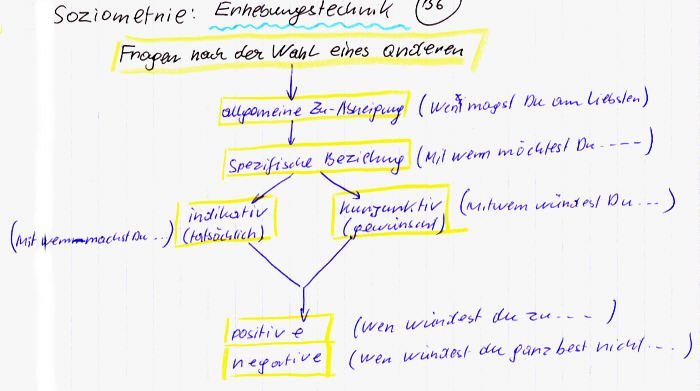 Soziometrie: Erhebungstechnik 136
Fragen nach der Wahl eines anderen
allgemeine Zu-Abneigung (Wen magst Du am Liebsten)
Spezifische Beziehung (Mit wenn möchtest Du ----)
indikativ
(tatsächlich)
Kunjunktiv
(gewünscht)
(Mit wem würdest Du ...)
(Mit wem machst Du ...)
positive (Wen würdest du zu ---)
negative (Wen würdest du ganz best nicht ...)